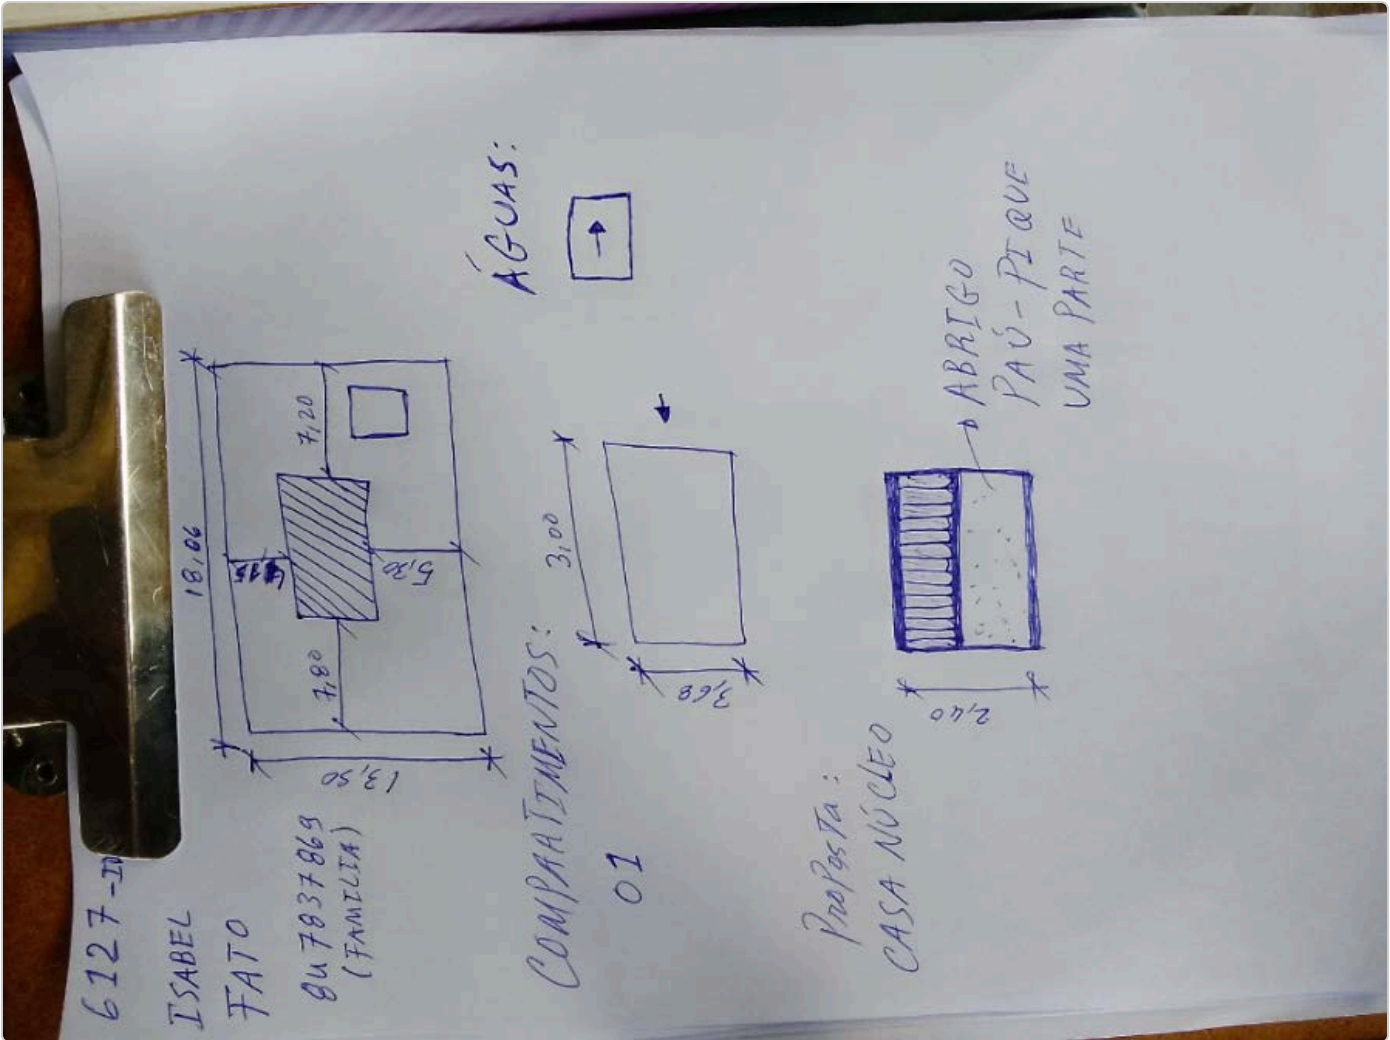 6127-
ISABEL
FATO
847837869
(FAMILIA)
18,06
13,50
7,80
7,20
5,30
COMPAATIMENTOS:
01
3,00
3,60
ÁGUAS:
PROPOSTA:
CASA NÚCLEO
2,40
ABRIGO
PAÚ-PIQUE
UMA PARTE